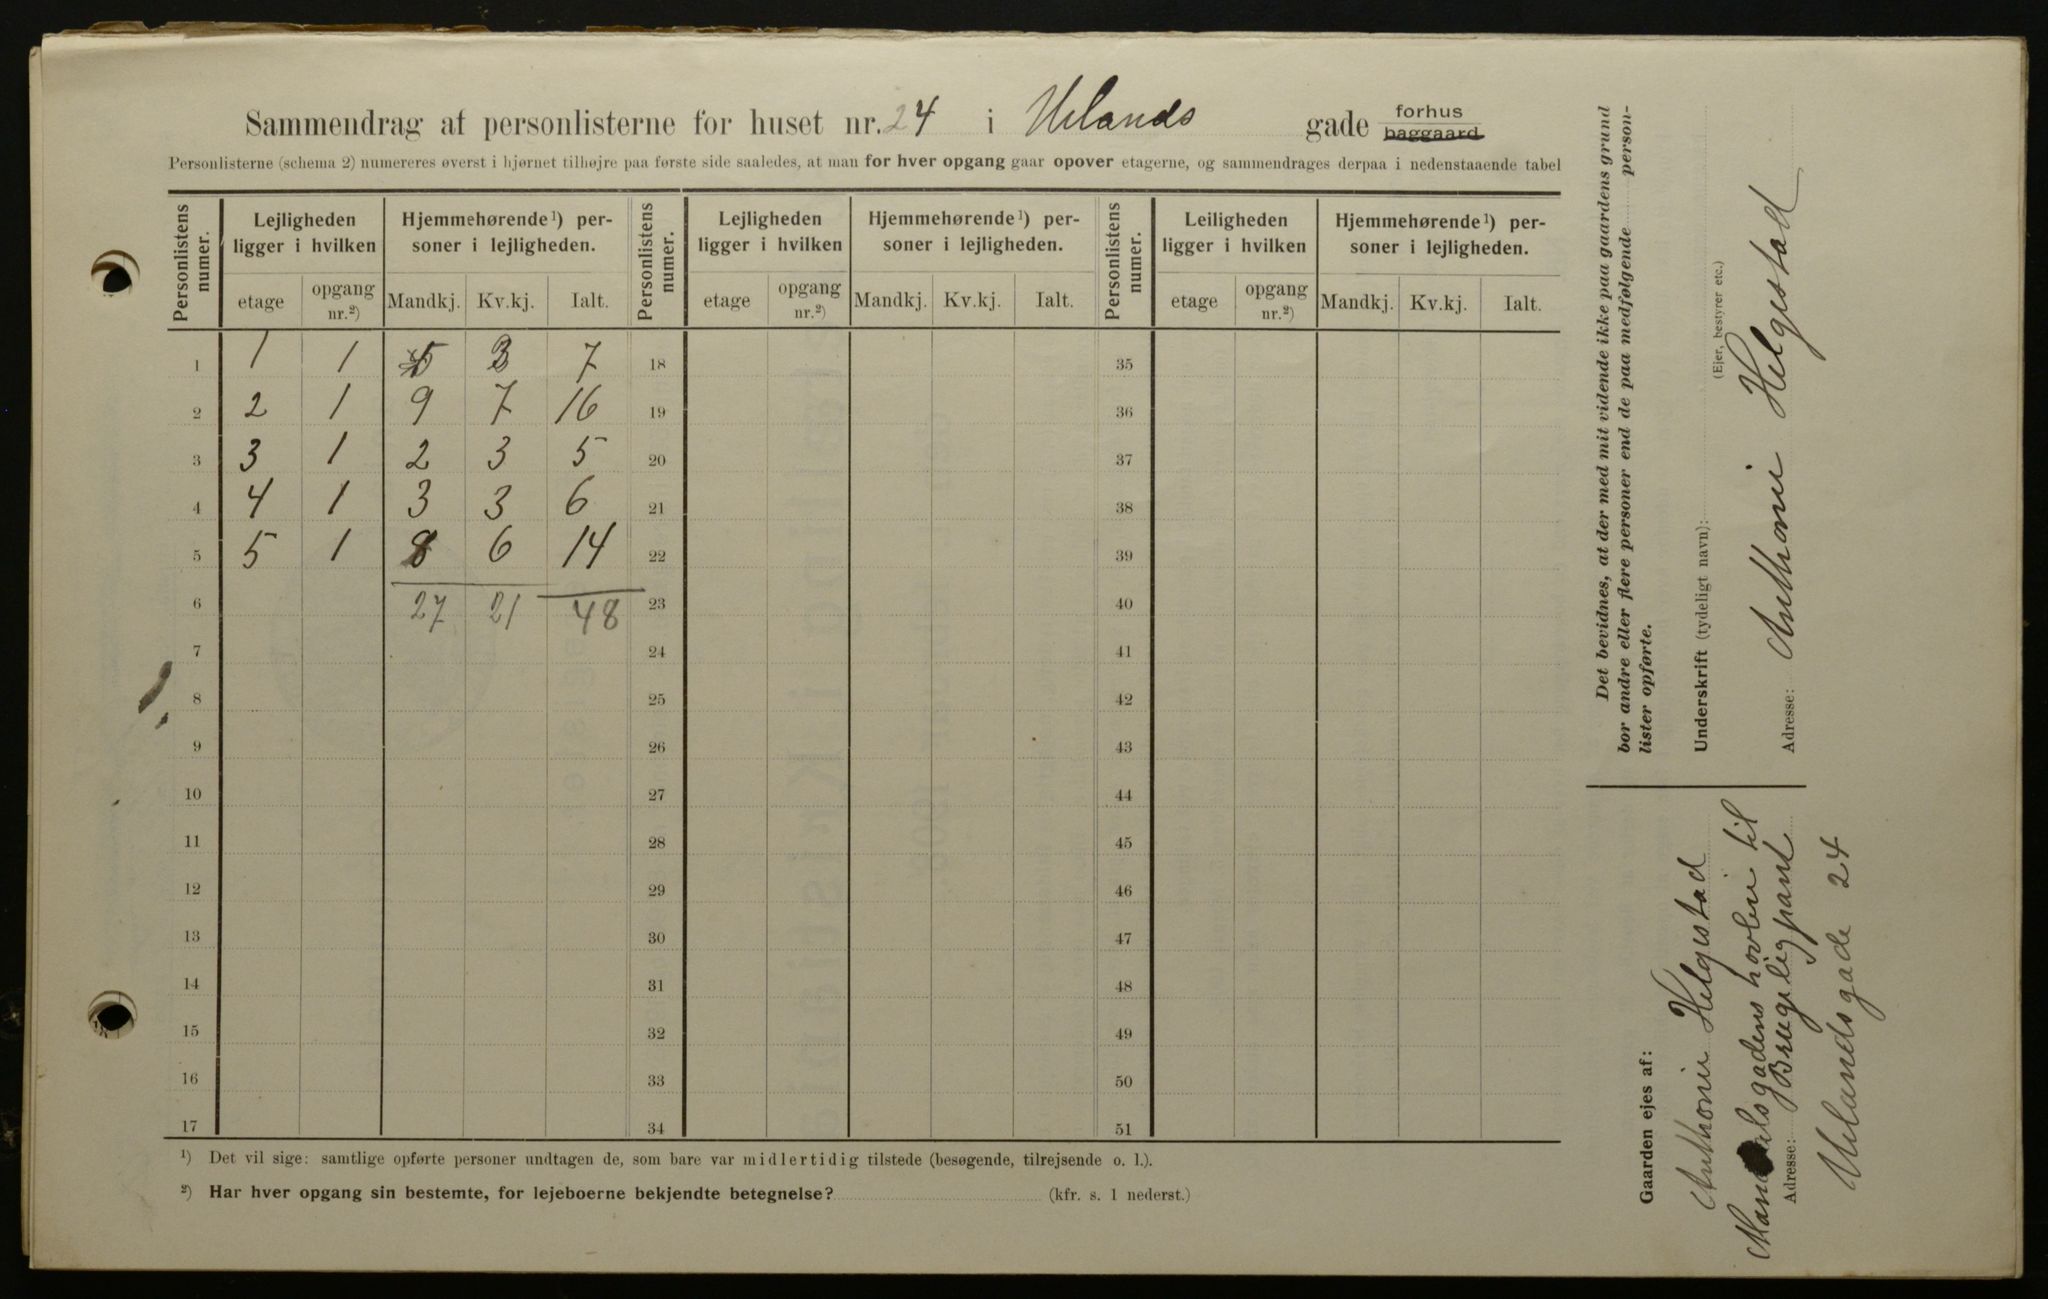 Sammendrag af personlisterne for huset nr. 24 i Uelands gade forhus baggaard
Personlisterne (schema 2) numereres øverst i hjørnet tilhøjre paa første side saaledes, at man for hver opgang gaar opover etagerne, og sammendrages derpaa i nedenstaaende tabel
Personlistens numer. Lejligheden ligger i hvilken Hjemmehørende¹) personer i lejligheden. Personlistens numer. Lejligheden ligger i hvilken Hjemmehørende¹) personer i lejligheden. Personlistens numer. Leiligheden ligger i hvilken Hjemmehørende¹) personer i lejligheden.
etage opgang nr.²) Mandkj. Kv.kj. Ialt. etage opgang nr.²) Mandkj. Kv.kj. Ialt. etage opgang nr.²) Mandkj. Kv.kj. Ialt.
1 1 1 5 3 7 18 35
2 2 1 9 7 16 19 36
3 3 1 2 3 5 20 37
4 4 1 3 3 6 21 38
5 5 1 8 6 14 22 39
6 27 21 48 23 40
7 24 41
8 25 42
9 26 43
10 27 44
11 28 45
12 29 46
13 30 47
14 31 48
15 32 49
16 33 50
17 34 51
¹) Det vil sige: samtlige opførte personer undtagen de, som bare var midlertidig tilstede (besøgende, tilrejsende o. l.).
²) Har hver opgang sin bestemte, for lejeboerne bekjendte betegnelse? (kfr. s. 1 nederst.)
Det bevidnes, at der med mit vidende ikke paa gaardens grund
bor andre eller flere personer end de paa medfølgende person-
lister opførte.
Underskrift (tydeligt navn):
(Ejer, bestyrer etc.)
Anthoni Helgestad
Adresse:
Gaarden ejes af:
Anthoni Helgestad
til
Adresse:
Uelandsgade 24